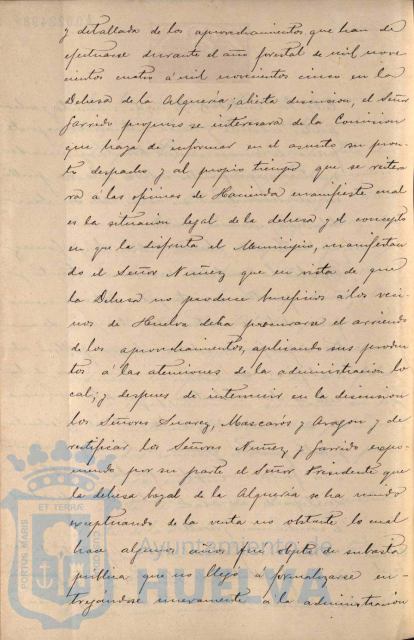 y detallada de los aprovechamientos que han de
efectuarse durante el año forestal de mil nove-
cientos cuatro á mil novecientos cinco en la
Dehesa de la Alquería; abierta discusion, el Señor
Garrido propuso se interesara de la Comision
que haya de informar en el asunto su pron-
to despacho y al propio tiempo que se reitera-
ra á las oficinas de Hacienda manifieste cual
es la situacion legal de la dehesa y el concepto
en que la disfruta el Municipio, manifestan-
do el Señor Nuñez que en vista de que
la Dehesa no produce beneficios á los veci-
nos de Huelva debia procurarse el arriendo
de los aprovechamientos, aplicando sus produc-
tos á las atenciones de la administracion lo-
cal; y despues de intervenir en la discusion
los Señores Suarez, Mascarós y Aragon y de
rectificar los Señores Nuñez y Garrido expo-
niendo por su parte el Señor Presidente que
la dehesa boyal de la Alquería se ha venido
exceptuando de la venta no obstante lo cual
hace algunos años fué objeto de subasta
pública que no llegó á formalizarse en-
tregándose nuevamente á la administracion
PORTUS MARIS
ET TERRÆ
CUSTODIA
Ayuntamiento de
HUELVA